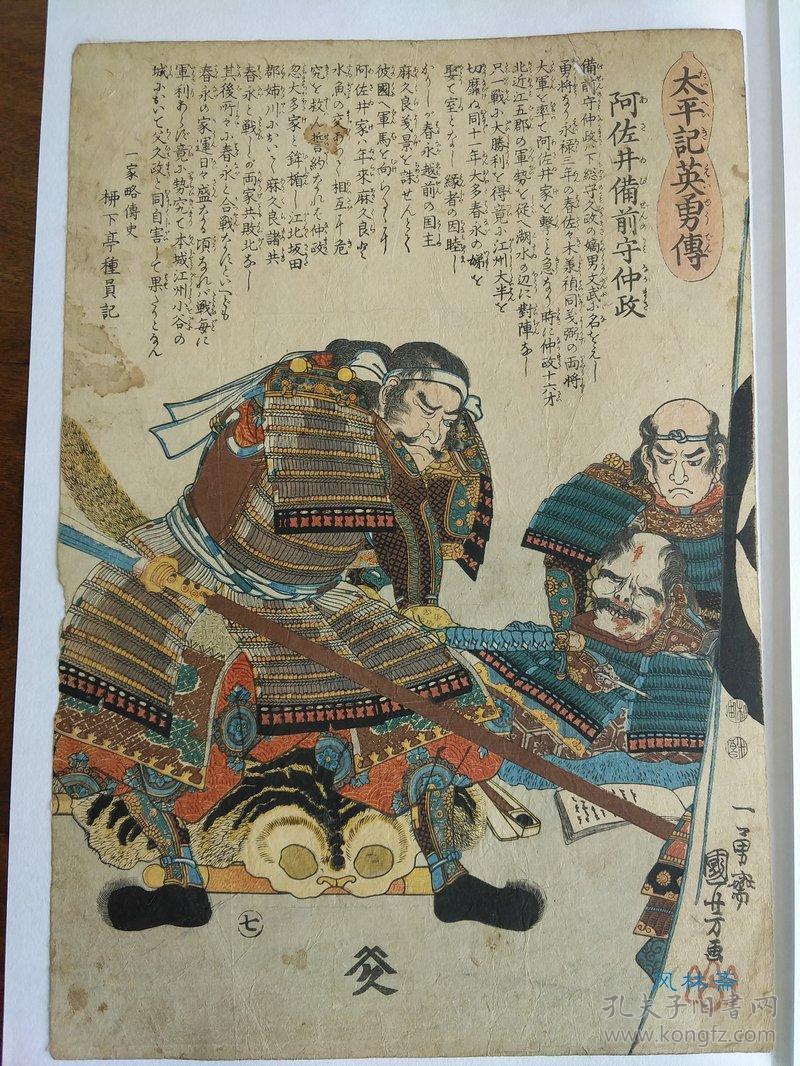 太平記英勇傳
阿佐井備前守仲政
備前守仲政ハ下総守久政の嫡男文武に名をえし
勇将なり永禄三年の春佐々木義禎同義弼の両将
大軍を率て阿佐井家を撃こと急なり時に仲政十六才
北近江五郡の軍勢を従へ湖水の辺に對陣なし
只一戦に大勝利を得竟に江州大半を
切靡ぬ同十一年大多春永の娣を
娶て室となし縁者の因睦し
かりしが春永越前の国主
麻久良義景を誅せんとて
彼國へ軍馬を向らるゝに
阿佐井家ハ年來麻久良と
水魚の交あつく相互に危
究を救ん誓約なれバ仲政
忽大多家と鉾楯し江北坂田
郡姉川において麻久良諸共
春永と戦しが両家共敗北なし
其後所々に春永と合戦なすといへども
春永の家運日々盛なる頃なれバ戦毎に
軍利あらず竟に勢究て本城江州小谷の
城において父久政と同自害して果たりとなん
一家略傳史
柳下亭種員記
一勇齋
國芳画
七
风林斋
孔夫子旧书网
www.kongfz.com